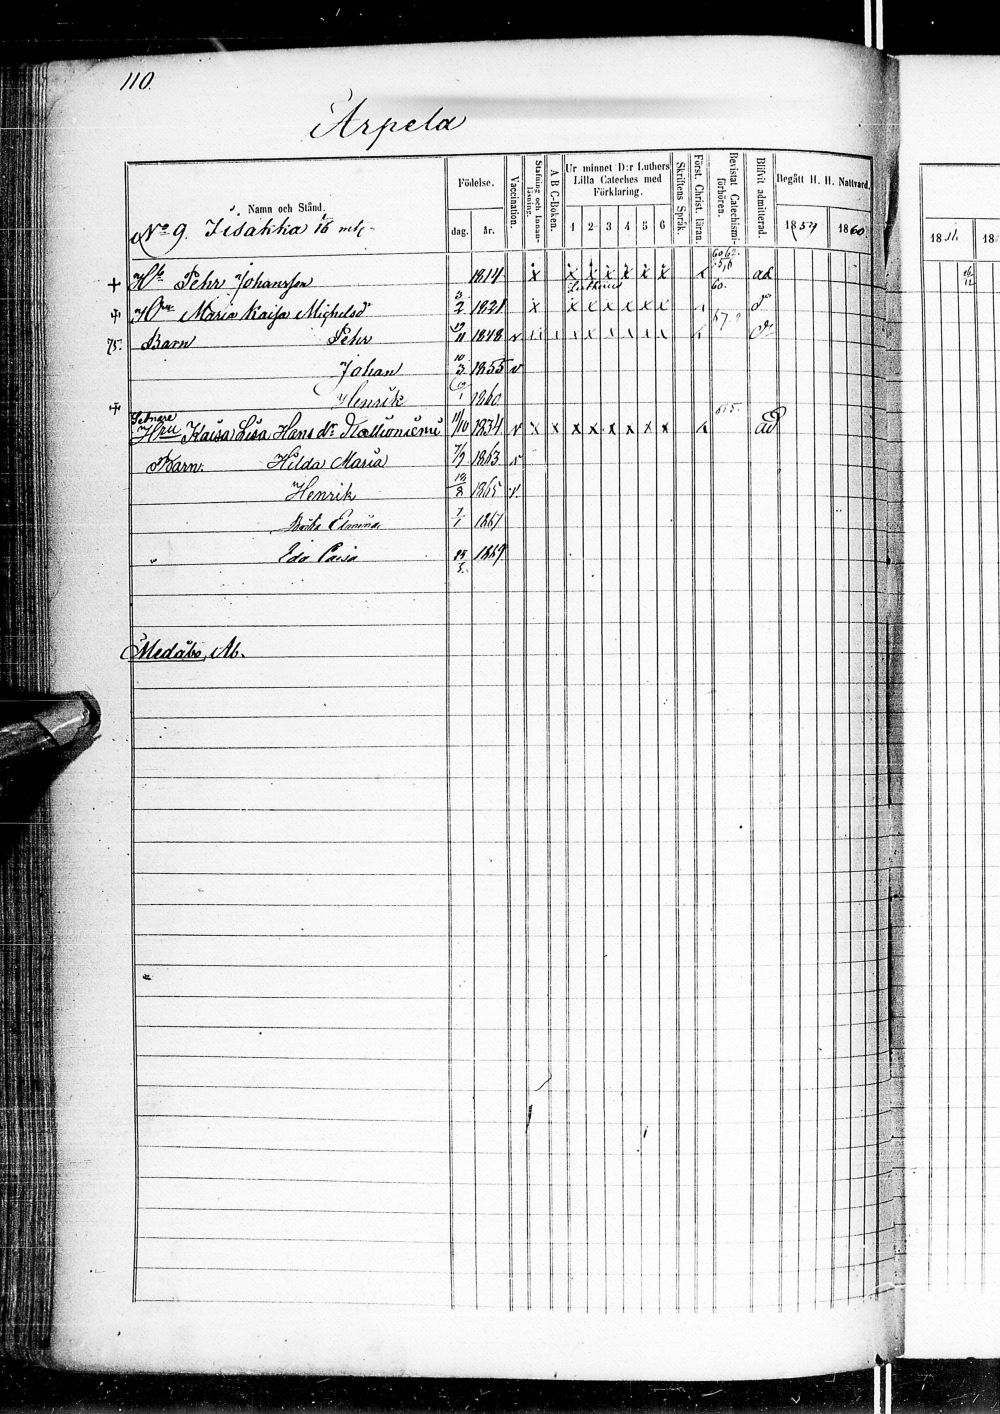 110.
Arpela
Namn och Stånd.
Födelse.
dag.
år.
Vaccination.
Stafning och Innanläsning.
A B C-Boken.
Ur minnet D:r Luthers Lilla Cateches med Förklaring.
1 2 3 4 5 6
Skriftens Språk.
Först. Christ. läran.
Bevistat Catechismiförhören.
Blifvit admitterad.
Begått H. H. Nattvard.
1859
1860.
No 9. Iisakka
+ Pehr Johansson 1814 x x x x x x x ad
Maria Kaisa Michelsd:r 3/2 1821 x x x x x x x
75. Barn Pehr 1848 v
Johan 10/3 1855 v
Henrik 1860
Sednare
Hru Kaisa Lisa Hans d:r Kallioniemi 11/10 1834 v x x x x x x x x ad
Barn: Hilda Maria 7/9 1863 v
Henrik 1865 v.
Elmina 7/1 1867
" Eda Caisa 1869
Medåbo, Ab.